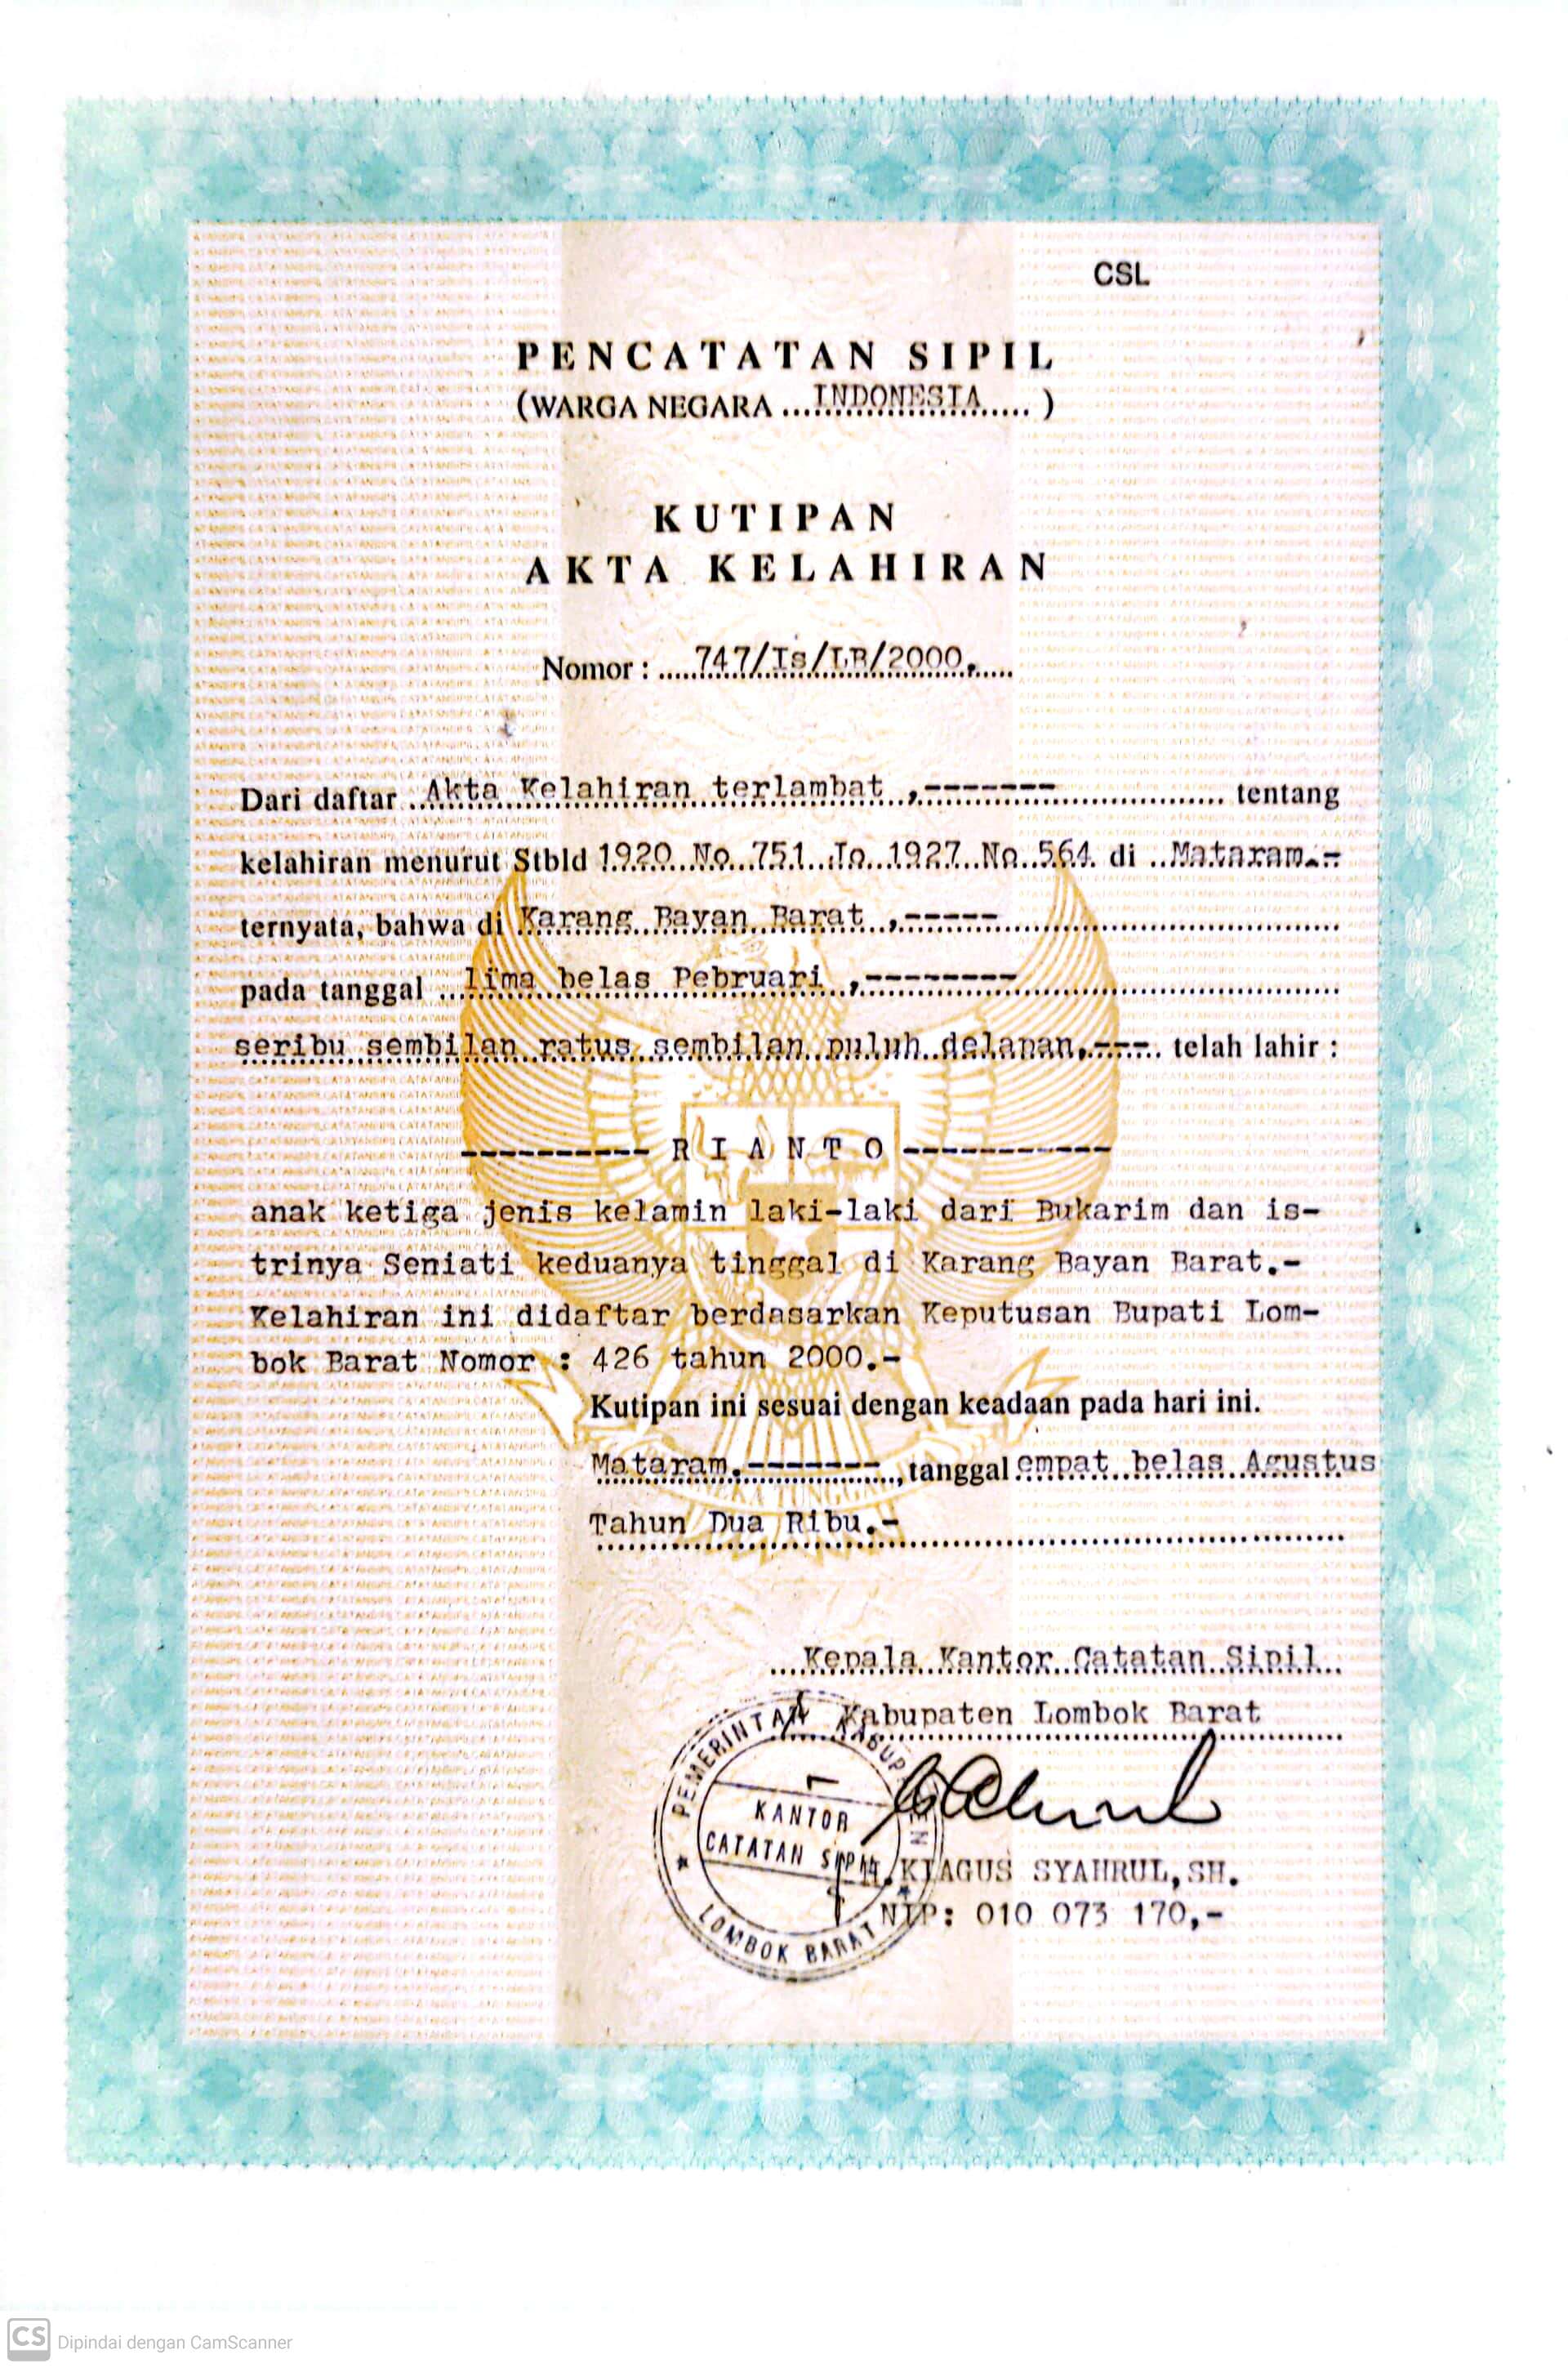 CSL
PENCATATAN SIPIL
(WARGA NEGARA ...INDONESIA...... )
KUTIPAN
AKTA KELAHIRAN
Nomor : ....747/Is/LB/2000,.....
Dari daftar ..Akta Kelahiran terlambat ,-------- tentang
kelahiran menurut Stbld 1920 No 751 Jo 1927 No 564 di ..Mataram.-
ternyata, bahwa di Karang Bayan Barat ,-----
pada tanggal ...lima belas Pebruari ,--------
seribu sembilan ratus sembilan puluh delapan,---. telah lahir :
---------- R I A N T O -----------
anak ketiga jenis kelamin laki-laki dari Bukarim dan is-
trinya Seniati keduanya tinggal di Karang Bayan Barat.-
Kelahiran ini didaftar berdasarkan Keputusan Bupati Lom-
bok Barat Nomor : 426 tahun 2000.-
Kutipan ini sesuai dengan keadaan pada hari ini.
Mataram.-------, tanggal empat belas Agustus
Tahun Dua Ribu.-
Kepala Kantor Catatan Sipil
Kabupaten Lombok Barat
PEMERINTAH KABUPATEN
KANTOR
CATATAN SIPIL
LOMBOK BARAT
H.KIAGUS SYAHRUL,SH.
NIP: 010 073 170,-
CS Dipindai dengan CamScanner